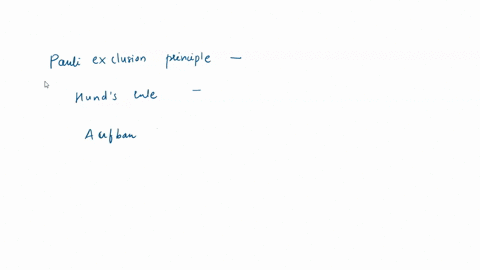 Pauli exclusion principle —
Hund's rule —
Aufbau